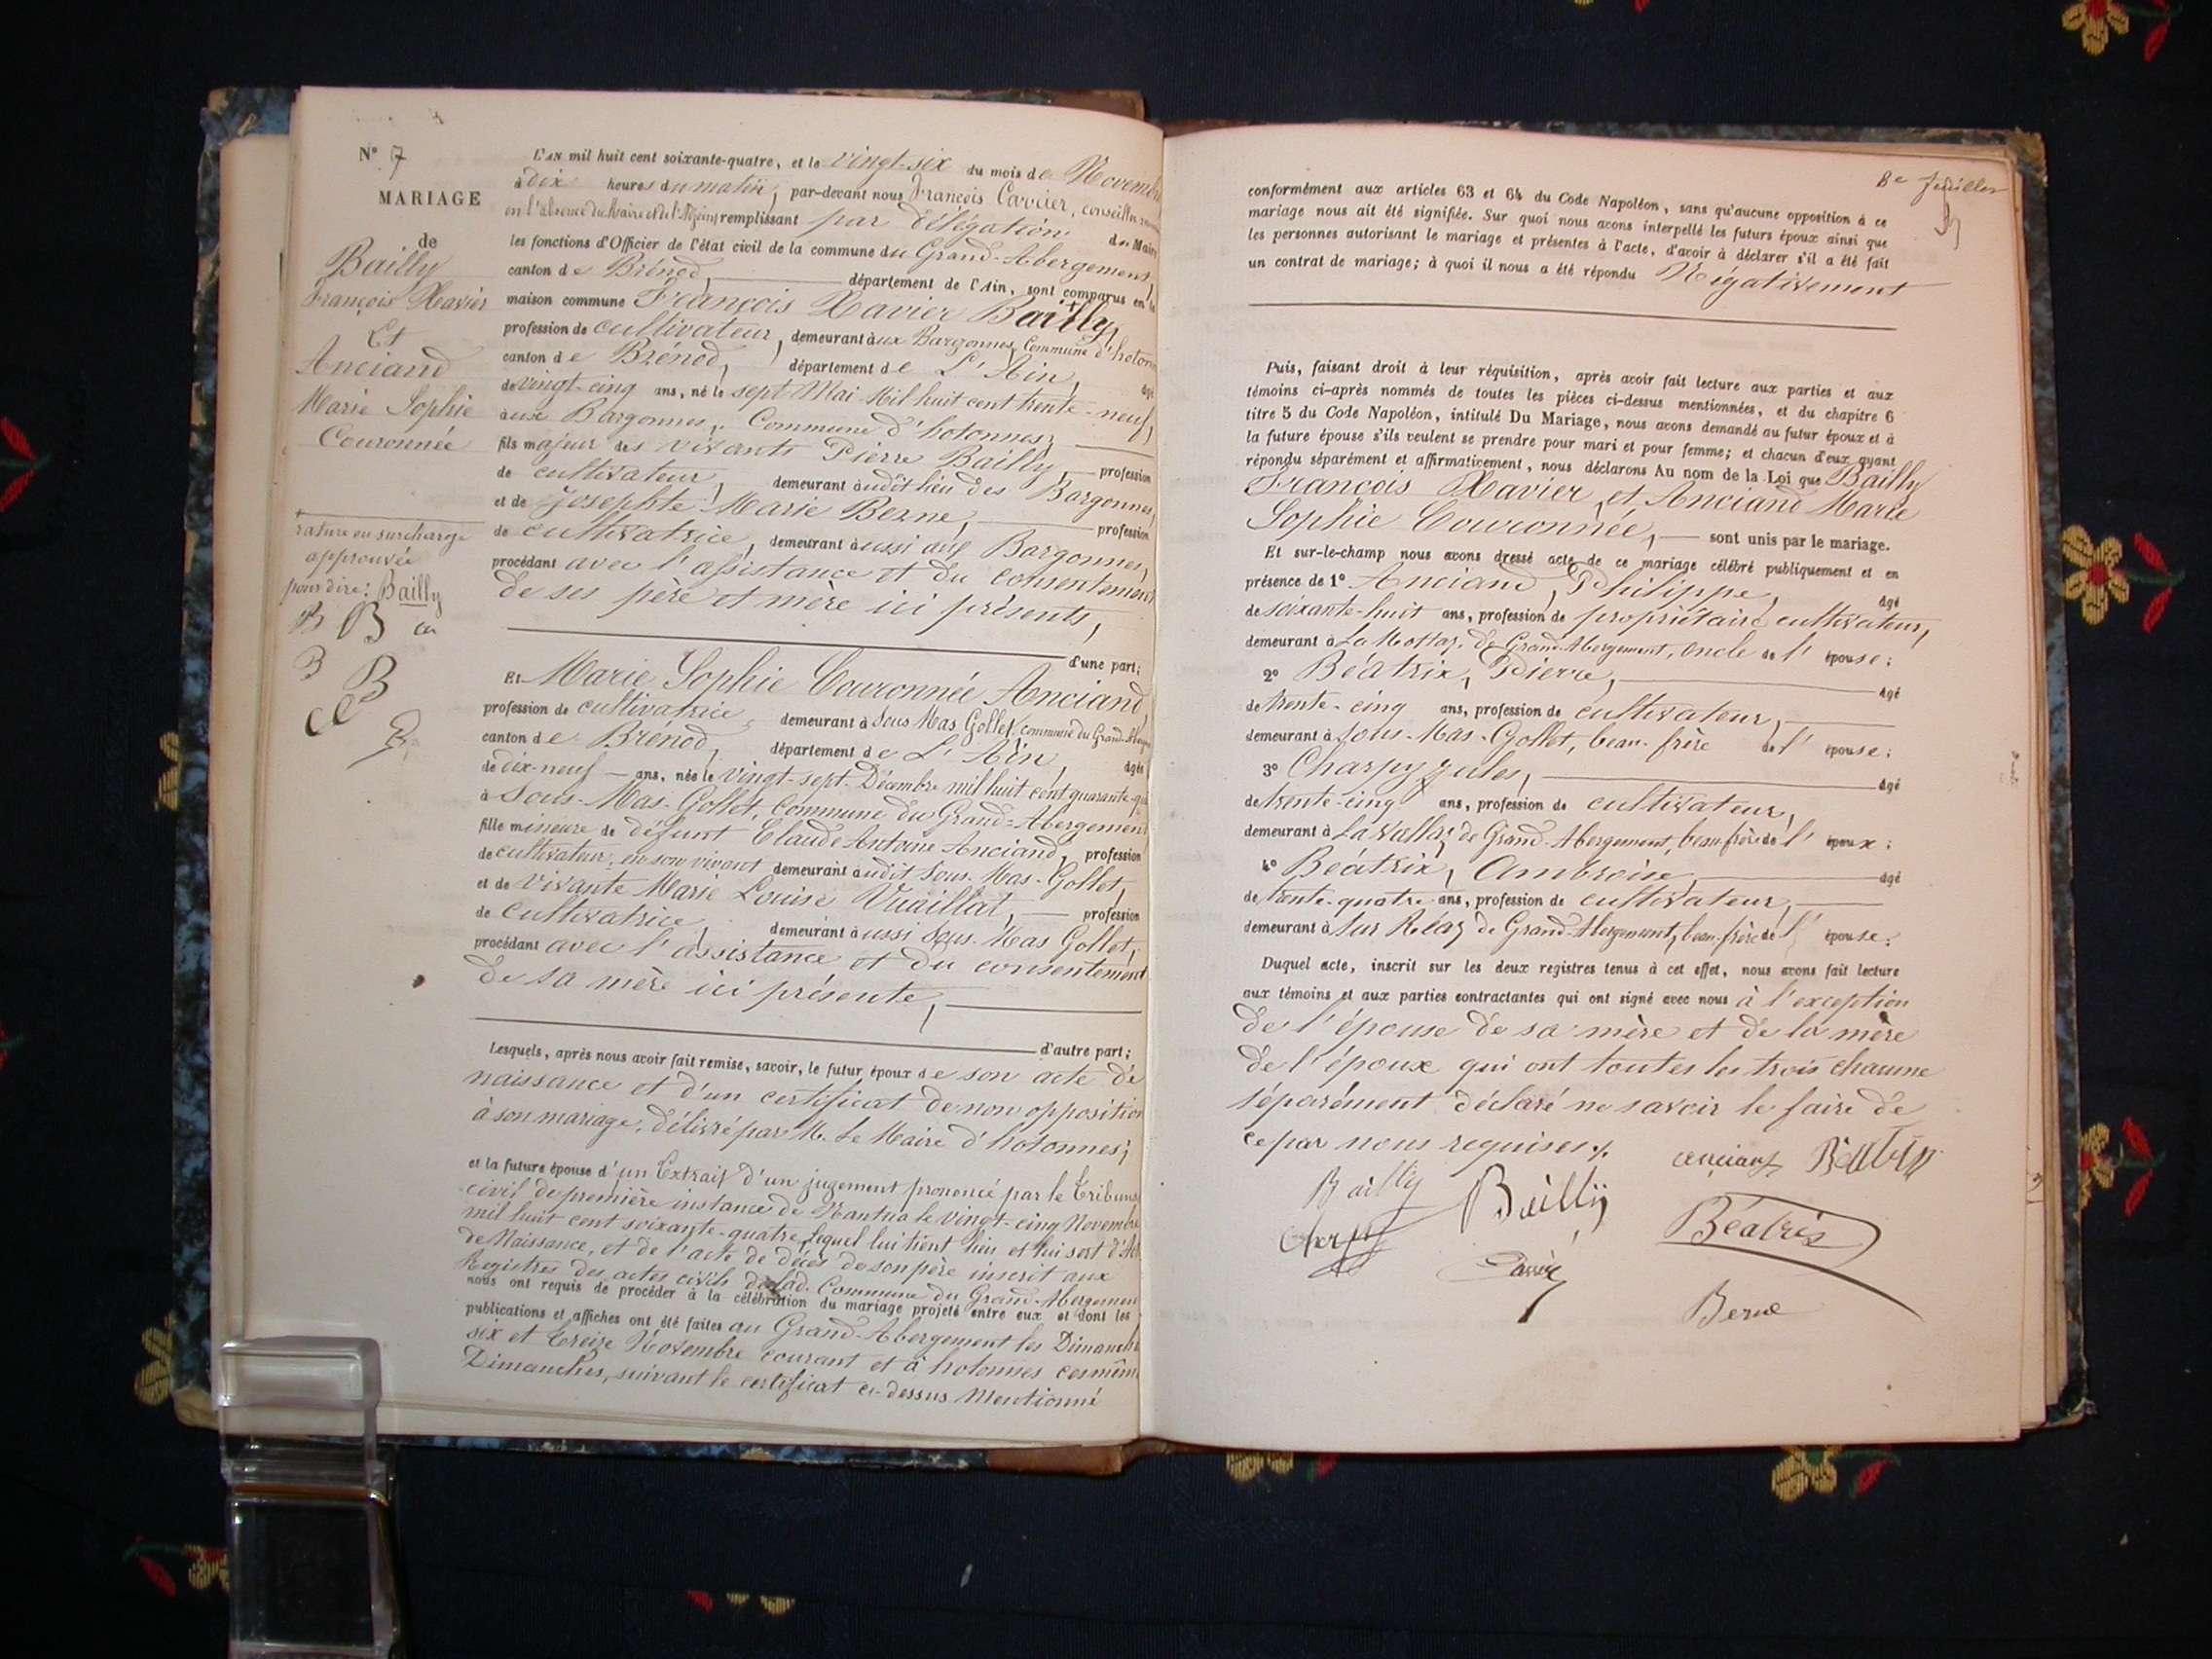 N° 7
MARIAGE
de
Bailly
François Xavier
Et
Anciand
Marie Sophie
Couronnée
rature ou surcharge
approuvée
pour dire: Bailly
L'an mil huit cent soixante-quatre, et le vingt-six du mois de Novembre
à dix heures du matin, par-devant nous François Carrier, conseiller
en l'absence du Maire et de l'Adjoint remplissant par délégation du Maire
les fonctions d'Officier de l'état civil de la commune du Grand-Abergement,
canton de Brénod, département de l'Ain, sont comparus en la
maison commune François Xavier Bailly,
profession de cultivateur, demeurant aux Bargonnes, Commune d'hotonnes
canton de Brénod, département de L'Ain, âgé
de vingt-cinq ans, né le sept Mai Mil huit cent trente-neuf,
aux Bargonnes, Commune d'hotonnes,
fils majeur des vivants Pierre Bailly, profession
de cultivateur, demeurant audit lieu des Bargonnes,
et de Josephte Marie Berne, profession
de cultivatrice, demeurant aussi aux Bargonnes,
procédant avec l'assistance et du consentement
de ses père et mère ici présents,
d'une part;
Et Marie Sophie Couronnée Anciand
profession de cultivatrice, demeurant à Sous Mas Gollet, commune du Grand-Abergement
canton de Brénod, département de L'Ain, âgée
de dix-neuf ans, née le vingt-sept Décembre mil huit cent quarante-
à Sous-Mas-Gollet, Commune du Grand-Abergement
fille mineure de défunt Claude Antoine Anciand, profession
de cultivateur, en son vivant demeurant audit Sous-Mas-Gollet,
et de vivante Marie Louise Vuaillat, profession
de cultivatrice, demeurant aussi Sous-Mas Gollet,
procédant avec l'assistance et du consentement
de sa mère ici présente,
d'autre part;
Lesquels, après nous avoir fait remise, savoir, le futur époux de son acte de
naissance et d'un certificat de non opposition
à son mariage, délivré par M. Le Maire d'hotonnes;
et la future épouse d'un Extrait d'un jugement prononcé par le Tribunal
civil de première instance de Nantua le vingt-cinq Novembre
mil huit cent soixante-quatre, lequel lui tient lieu et lui sert d'Acte
de Naissance, et de l'acte de décès de son père inscrit aux
Registres des actes civils de lad. Commune du Grand-Abergement
nous ont requis de procéder à la célébration du mariage projeté entre eux et dont les
publications et affiches ont été faites au Grand-Abergement les Dimanches
six et treize Novembre courant et à hotonnes ces mêmes
Dimanches, suivant le certificat ci-dessus Mentionné
8e feuillet
conformément aux articles 63 et 64 du Code Napoléon, sans qu'aucune opposition à ce
mariage nous ait été signifiée. Sur quoi nous avons interpellé les futurs époux ainsi que
les personnes autorisant le mariage et présentes à l'acte, d'avoir à déclarer s'il a été fait
un contrat de mariage; à quoi il nous a été répondu Négativement
Puis, faisant droit à leur réquisition, après avoir fait lecture aux parties et aux
témoins ci-après nommés de toutes les pièces ci-dessus mentionnées, et du chapitre 6
titre 5 du Code Napoléon, intitulé Du Mariage, nous avons demandé au futur époux et à
la future épouse s'ils veulent se prendre pour mari et pour femme; et chacun d'eux ayant
répondu séparément et affirmativement, nous déclarons Au nom de la Loi que Bailly
François Xavier et Anciand Marie
Sophie Couronnée, sont unis par le mariage.
Et sur-le-champ nous avons dressé acte de ce mariage célébré publiquement et en
présence de 1° Anciand, Philippe, âgé
de soixante-huit ans, profession de propriétaire cultivateur,
demeurant à de Grand-Abergement, oncle de l'épouse;
2° Béatrix, Pierre, âgé
de trente-cinq ans, profession de cultivateur,
demeurant à Sous-Mas-Gollet, beau-frère de l'épouse;
3° Charpy Jules, âgé
de trente-cinq ans, profession de cultivateur,
demeurant à de Grand-Abergement, beau-frère de l'époux;
4° Béatrix, Ambroise, âgé
de trente-quatre ans, profession de cultivateur,
demeurant à Sur de Grand-Abergement, beau-frère de l'épouse.
Duquel acte, inscrit sur les deux registres tenus à cet effet, nous avons fait lecture
aux témoins et aux parties contractantes qui ont signé avec nous à l'exception
de l'épouse de sa mère et de la mère
de l'époux qui ont toutes les trois chacune
séparément déclaré ne savoir le faire de
ce par nous requises.
anciand
Bailly Bailly Béatrix
Berne